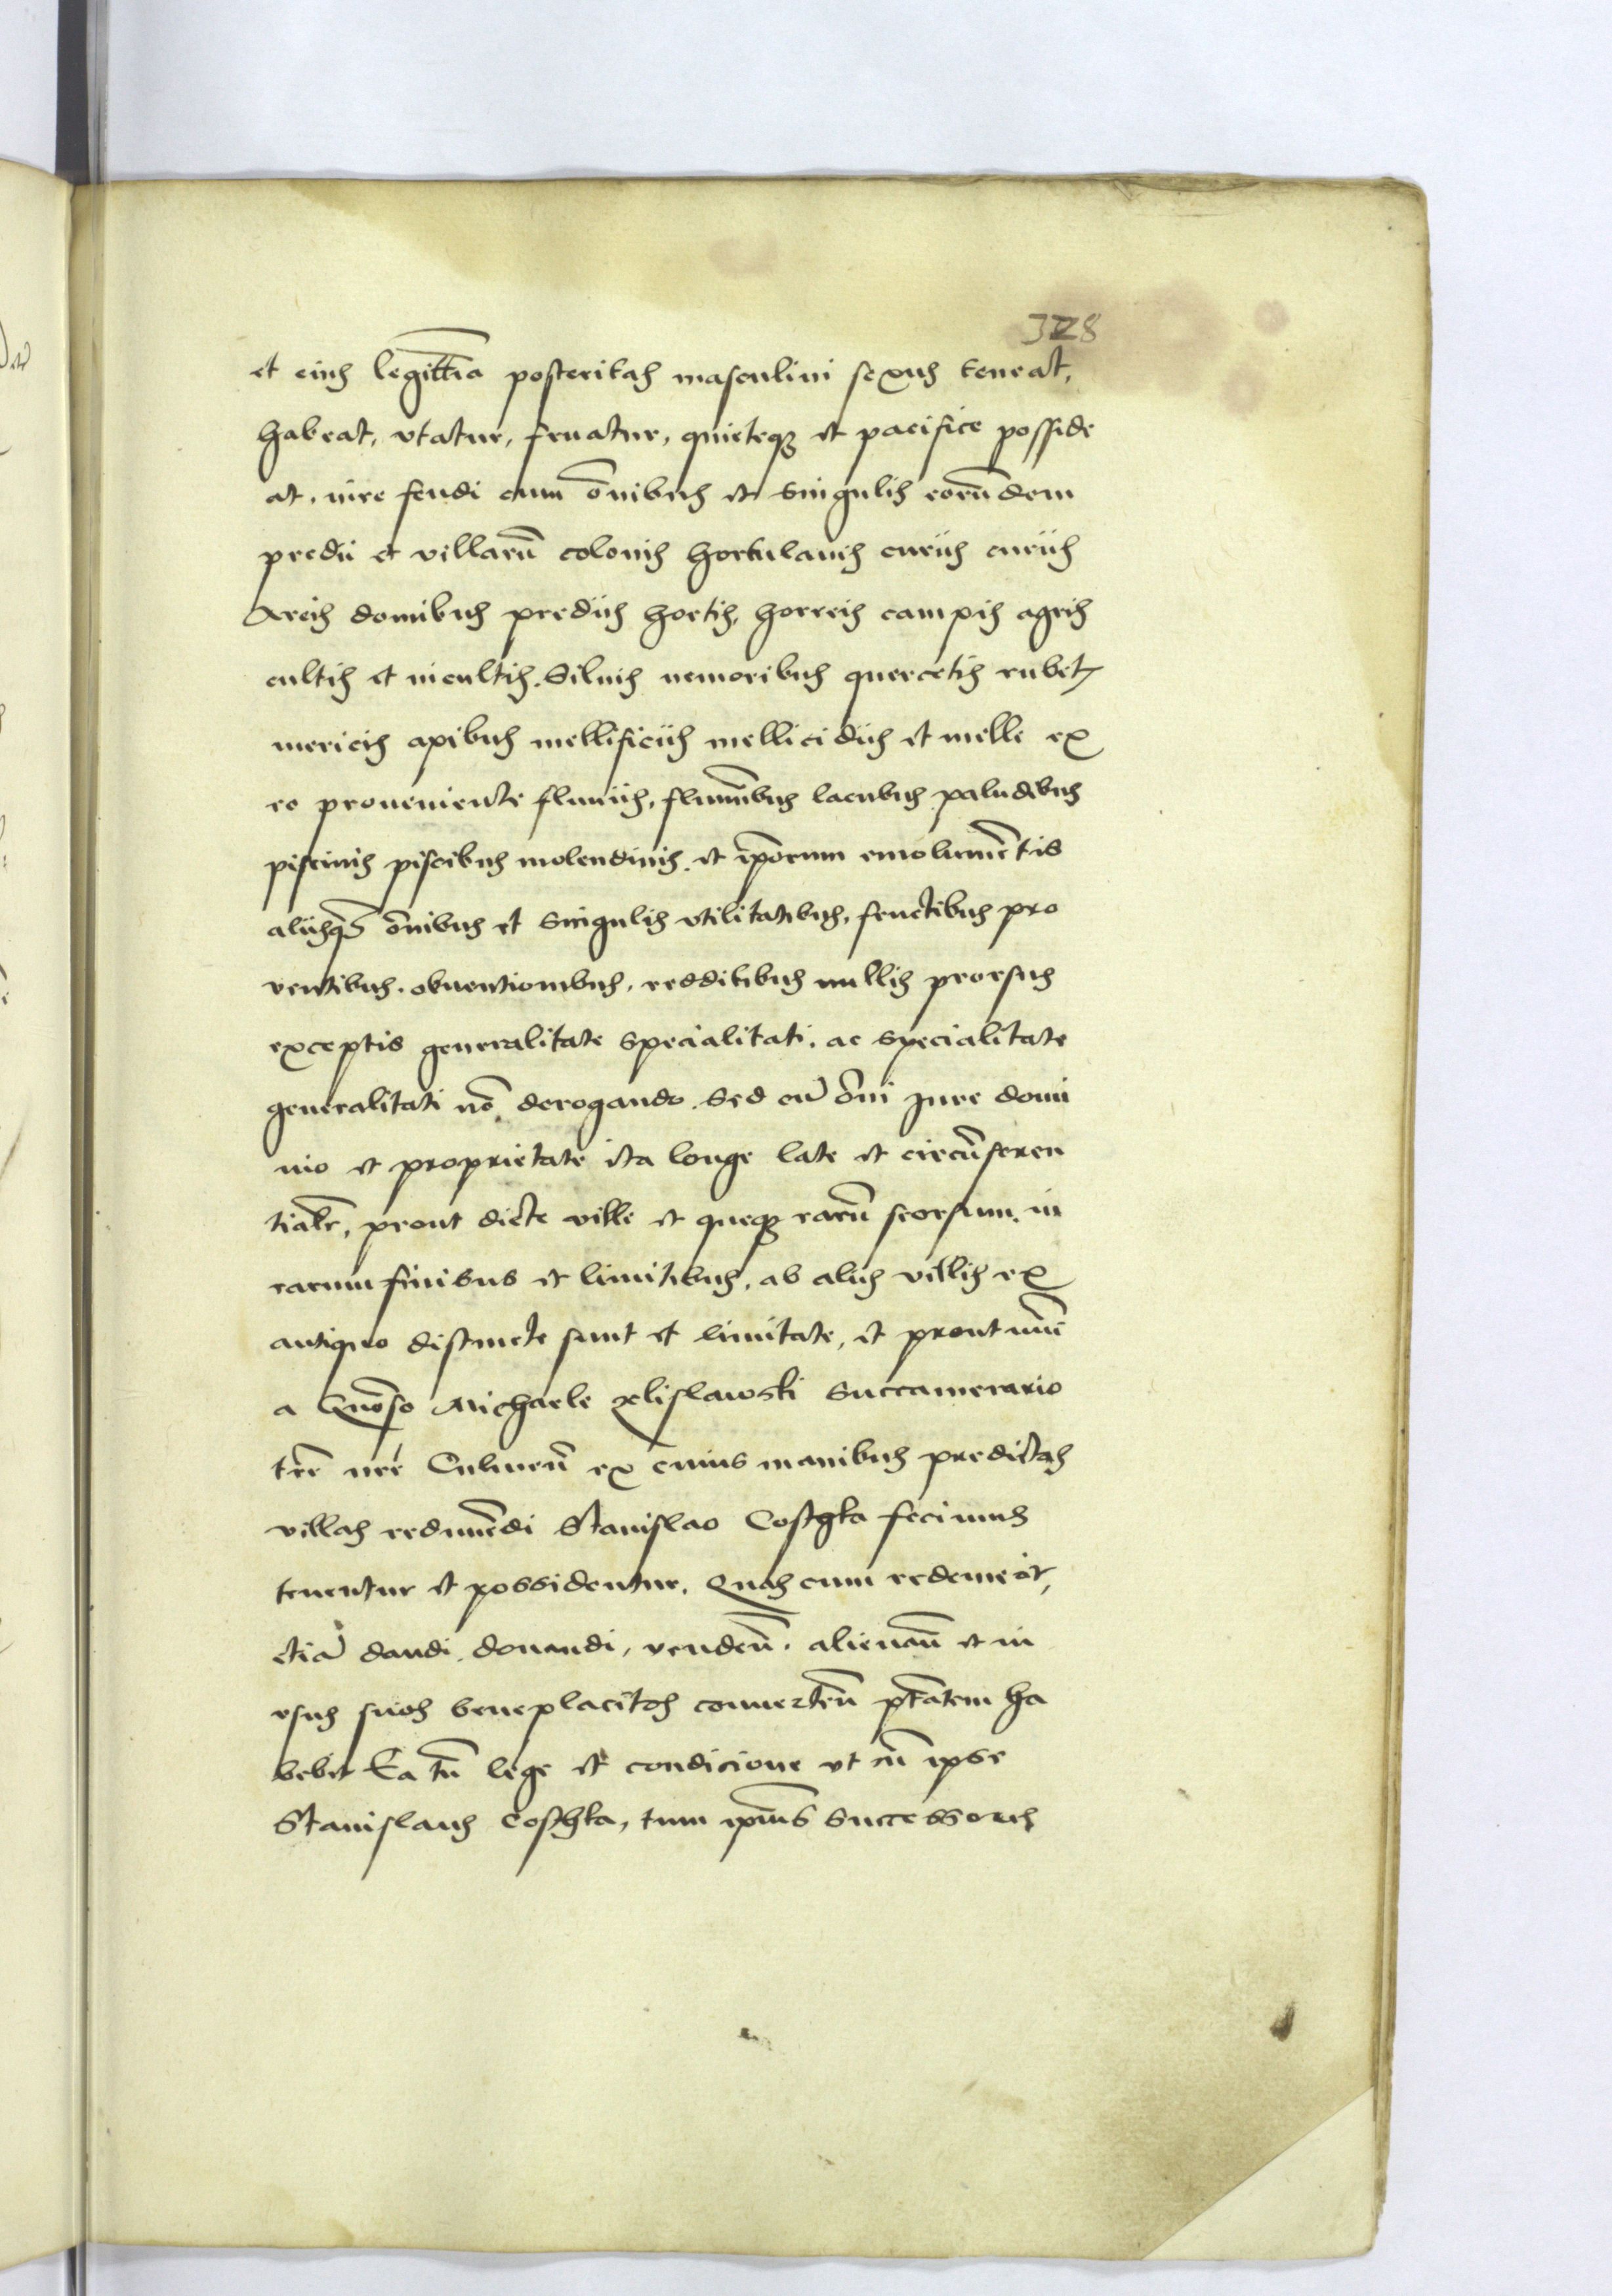 328
et eius legittīa posteritas masculini sexus teneat,
habeat, vtatur, fruatur, quieteqȝ et pacifice posside
at. iure feudi cum ōnibus et singulis eorūdem
predii et villarū colonis hortulanis curiis curiis
Areis domibus prediis hortis, horreis campis agris
cultis et incultis. Siluis nemoribus quercetis rubet
mericis apibus mellificiis mellicidiis et melle ex
eo proueniente fluuiis, flumībus lacubus paludibus
piscinis piscibus molendinis. et ip̄orum emolumētis
aliisqȝ ōnibus et singulis vtilitatibus, fructibus pro
uentibus. obuentionibus. redditibus nullis prorsus
exceptis generalitate specialitati. ac specialitate
generalitati nō derogando. Sed cū ōni Jure domi
nio et proprietate ita longe late et circūferen
tialr̄, prout dicte ville et queqȝ earū seorsum. in
earum finibus et limitibus. ab aliis villis ex
antiquo distincte sunt et limitate, et prout nūc
a Gn̄oso Michaele Zelislawski Succamerario
tr̄re nr̄e Culmen̄ ex cuius manibus predictas
villas redimēdi Stanislao Costhka fecimus
tenentur et possidentur. Quas cum redemerit,
etiā dandi donandi, venden̄. alienan̄ et in
vsus suos beneplacitos conuerten̄ p̄tatem ha
bebit Ea tn̄ lege et condicione vt cū ipse
Stanislaus Costhka, tum ip̄ius successores